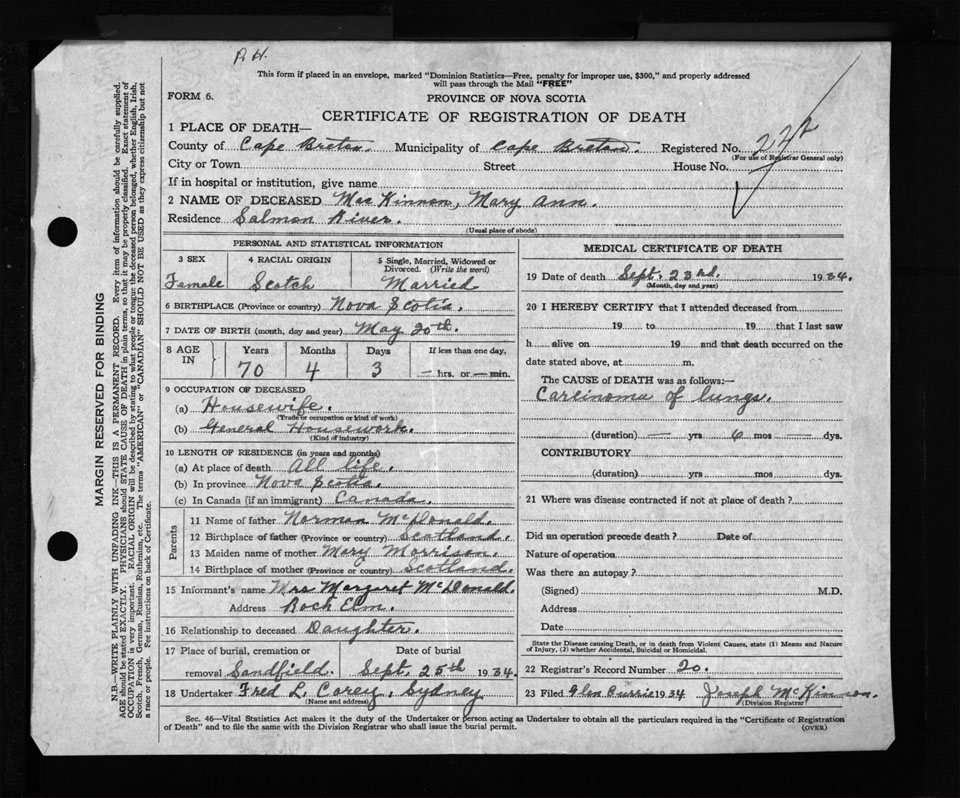 P. H.
This form if placed in an envelope, marked "Dominion Statistics—Free, penalty for improper use, $300," and properly addressed
will pass through the Mail "FREE"
FORM 6.
PROVINCE OF NOVA SCOTIA
CERTIFICATE OF REGISTRATION OF DEATH
1 PLACE OF DEATH—
County of Cape Breton. Municipality of Cape Breton. Registered No.
(For use of Registrar General only)
City or Town Street House No.
If in hospital or institution, give name
2 NAME OF DECEASED Mac Kinnon, Mary Ann.
Residence Salmon River.
(Usual place of abode)
PERSONAL AND STATISTICAL INFORMATION
3 SEX 4 RACIAL ORIGIN 5 Single, Married, Widowed or
Divorced. (Write the word)
Female Scotch Married
6 BIRTHPLACE (Province or country) Nova Scotia.
7 DATE OF BIRTH (month, day and year) May 20th.
8 AGE IN Years Months Days If less than one day,
70 4 3 — hrs. or — min.
9 OCCUPATION OF DECEASED
(a) Housewife.
(Trade or occupation or kind of work)
(b) General Housework.
(Kind of industry)
10 LENGTH OF RESIDENCE (in years and months)
(a) At place of death All life.
(b) In province Nova Scotia.
(c) In Canada (if an immigrant) Canada.
Parents
11 Name of father Norman McDonald.
12 Birthplace of father (Province or country) Scotland.
13 Maiden name of mother Mary Morrison.
14 Birthplace of mother (Province or country) Scotland.
15 Informant's name Mrs Margaret McDonald.
Address Rock Elm.
16 Relationship to deceased Daughter.
17 Place of burial, cremation or Date of burial
removal Sandfield. Sept. 25th 1934.
18 Undertaker Fred L. Corey, Sydney
(Name and address)
MEDICAL CERTIFICATE OF DEATH
19 Date of death Sept. 23rd. 1934.
(Month, day and year)
20 I HEREBY CERTIFY that I attended deceased from
19 to 19 that I last saw
h alive on 19 and that death occurred on the
date stated above, at m.
The CAUSE of DEATH was as follows:—
Carcinoma of lungs.
(duration) — yrs 6 mos — dys.
CONTRIBUTORY
(duration) yrs mos dys.
21 Where was disease contracted if not at place of death ?
Did an operation precede death ? Date of
Nature of operation
Was there an autopsy ?
(Signed) M.D.
Address
Date
State the Disease causing Death, or in death from Violent Causes, state (1) Means and Nature
of Injury, (2) whether Accidental, Suicidal or Homicidal.
22 Registrar's Record Number 20.
23 Filed Glen Currie 1934 Joseph McKinnon.
(Division Registrar)
Sec. 46—Vital Statistics Act makes it the duty of the Undertaker or person acting as Undertaker to obtain all the particulars required in the "Certificate of Registration
of Death" and to file the same with the Division Registrar who shall issue the burial permit.
(OVER)
MARGIN RESERVED FOR BINDING
N.B.—WRITE PLAINLY WITH UNFADING INK—THIS IS A PERMANENT RECORD. Every item of information should be carefully supplied.
AGE should be stated EXACTLY. PHYSICIANS should STATE CAUSE OF DEATH in plain terms, so that it may be properly classified. Exact statement of
OCCUPATION is very important. RACIAL ORIGIN will be described by stating to what people or tongue the deceased person belonged, whether English, Irish,
Scotch, French, German, Russian, Ruthenian, etc. The terms "AMERICAN" or "CANADIAN" SHOULD NOT BE USED as they express citizenship but not
a race or people. See instructions on back of Certificate.